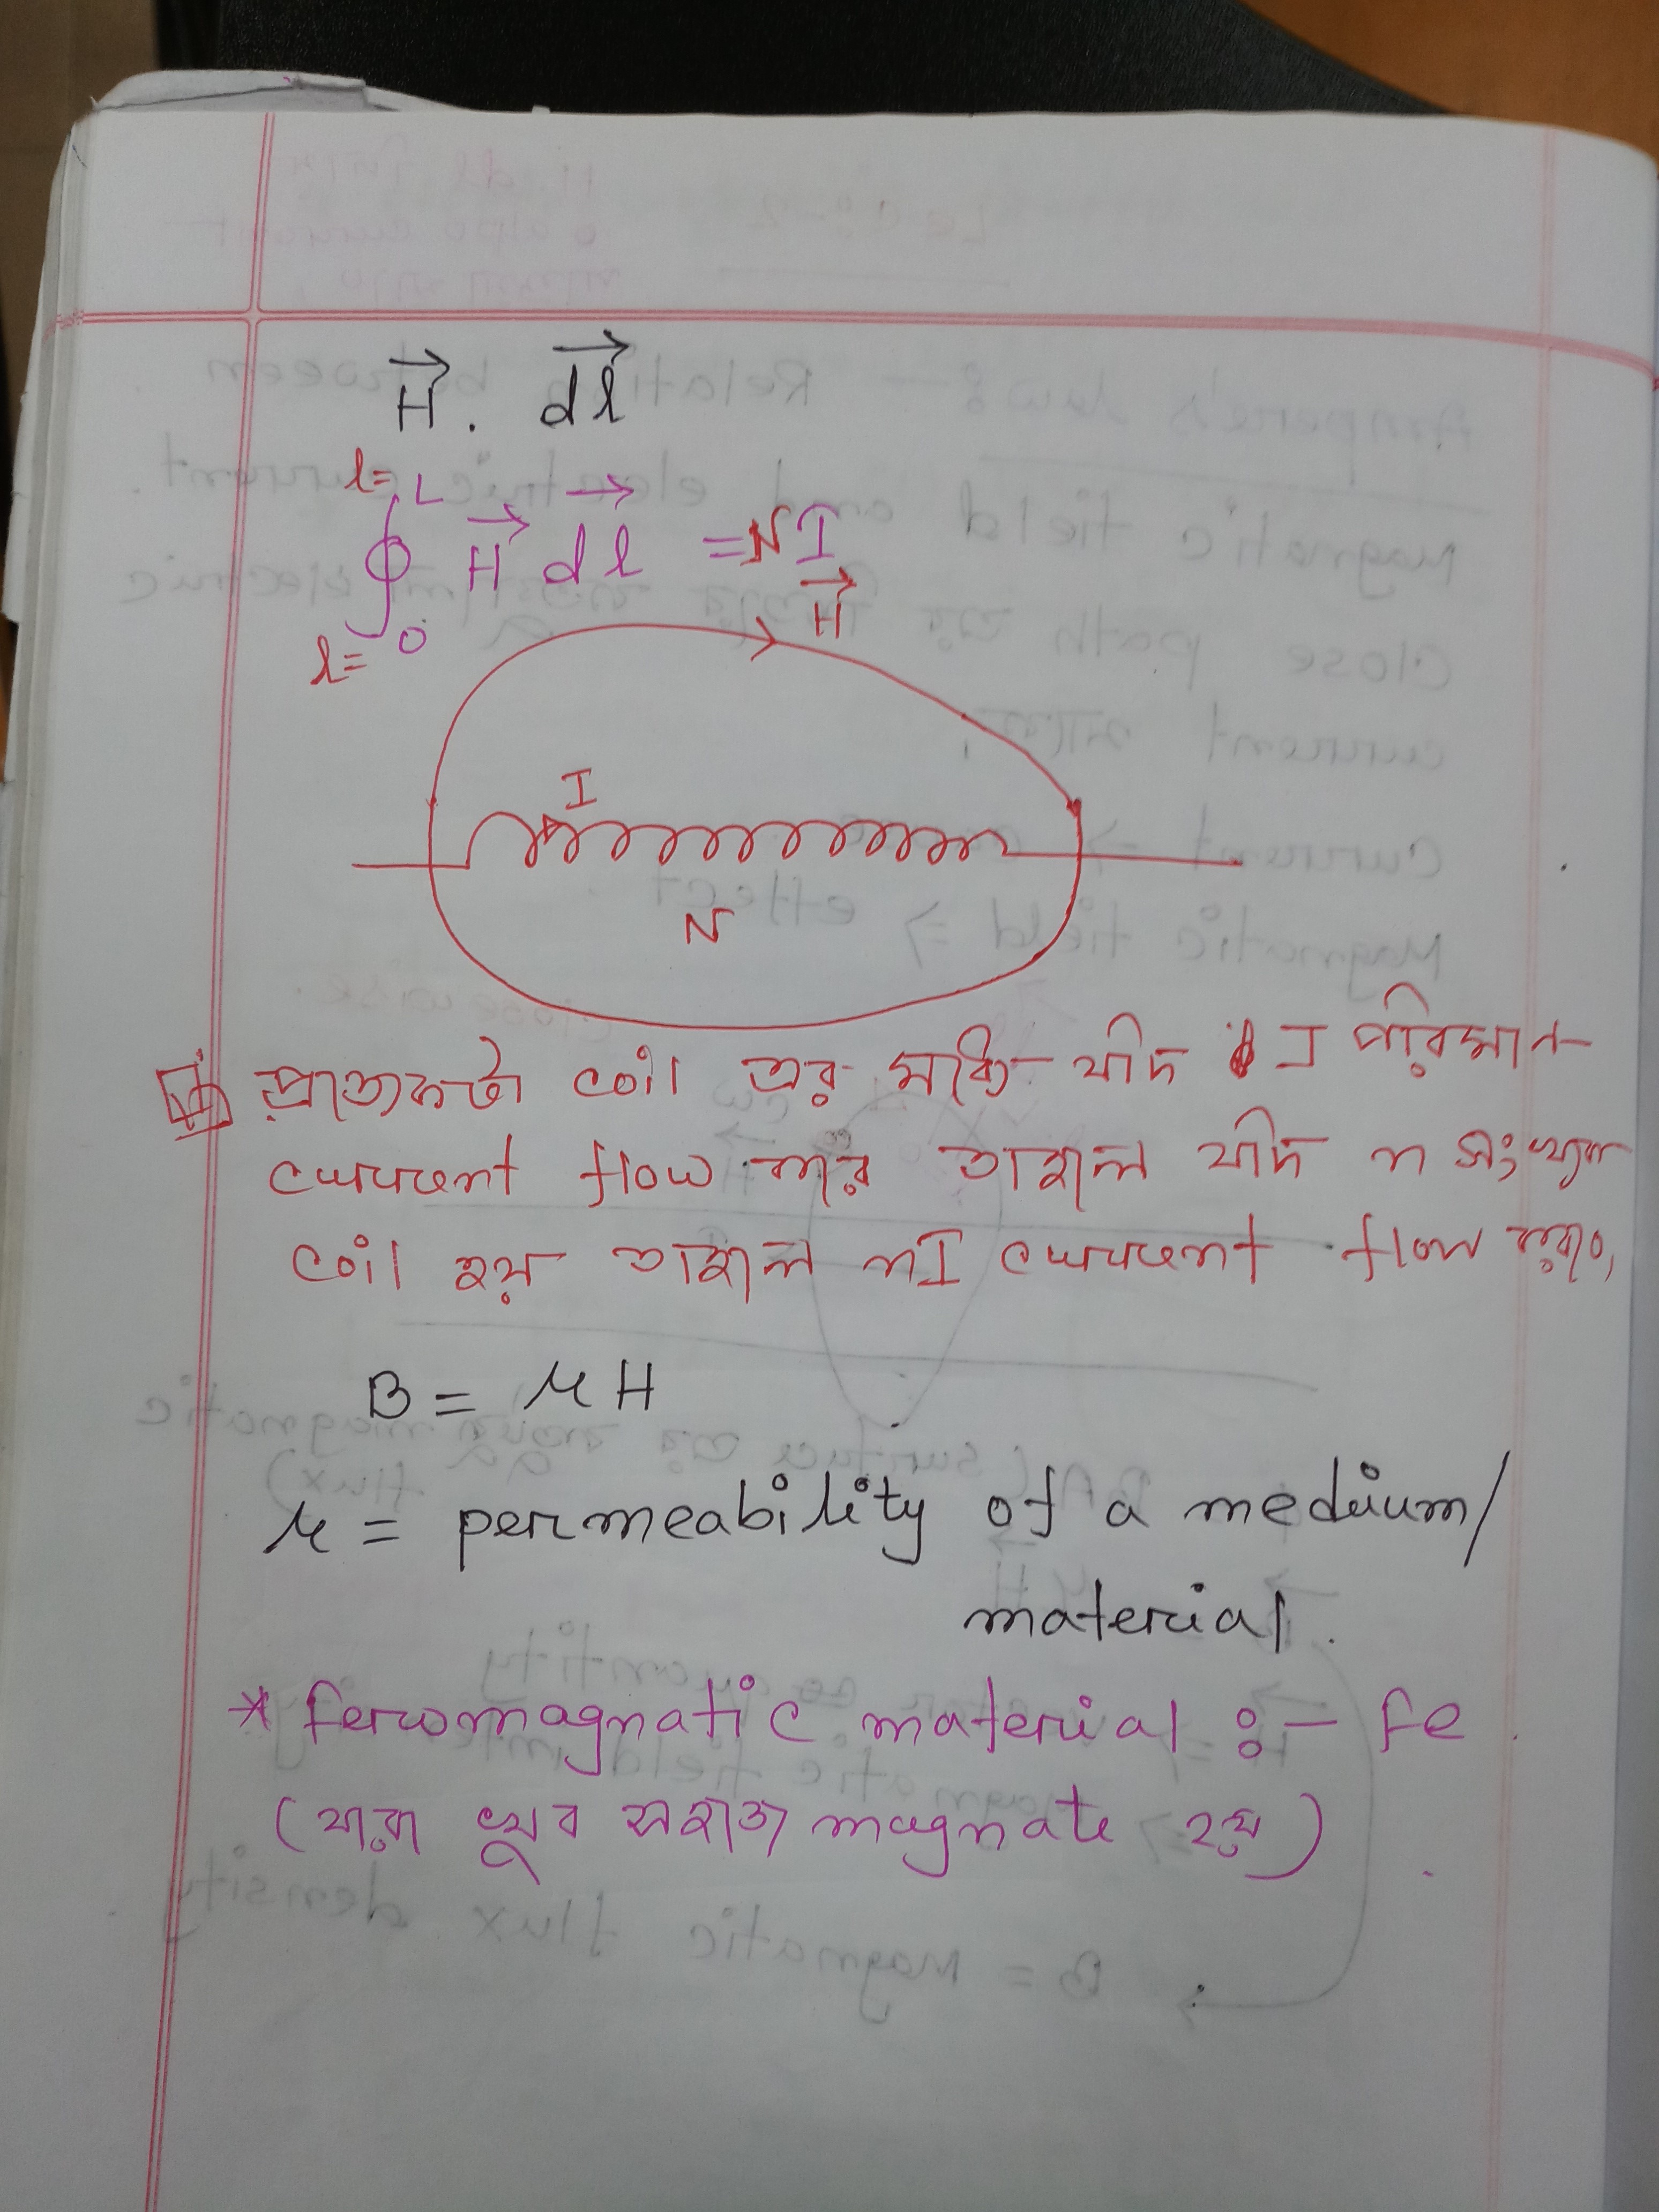 H⃗ . dl⃗
l= L
∮ H⃗ dl⃗ = NI
l= 0
H⃗
I
N
প্রত্যেকটা coil এর মধ্যে যদি I পরিমান
current flow করে তাহলে যদি n সংখ্যক
coil হয় তাহলে nI current flow করবে,
B = μH
μ = permeability of a medium/
material.
* ferromagnatic material :- fe.
(যারা খুব সহজে magnate হয়)